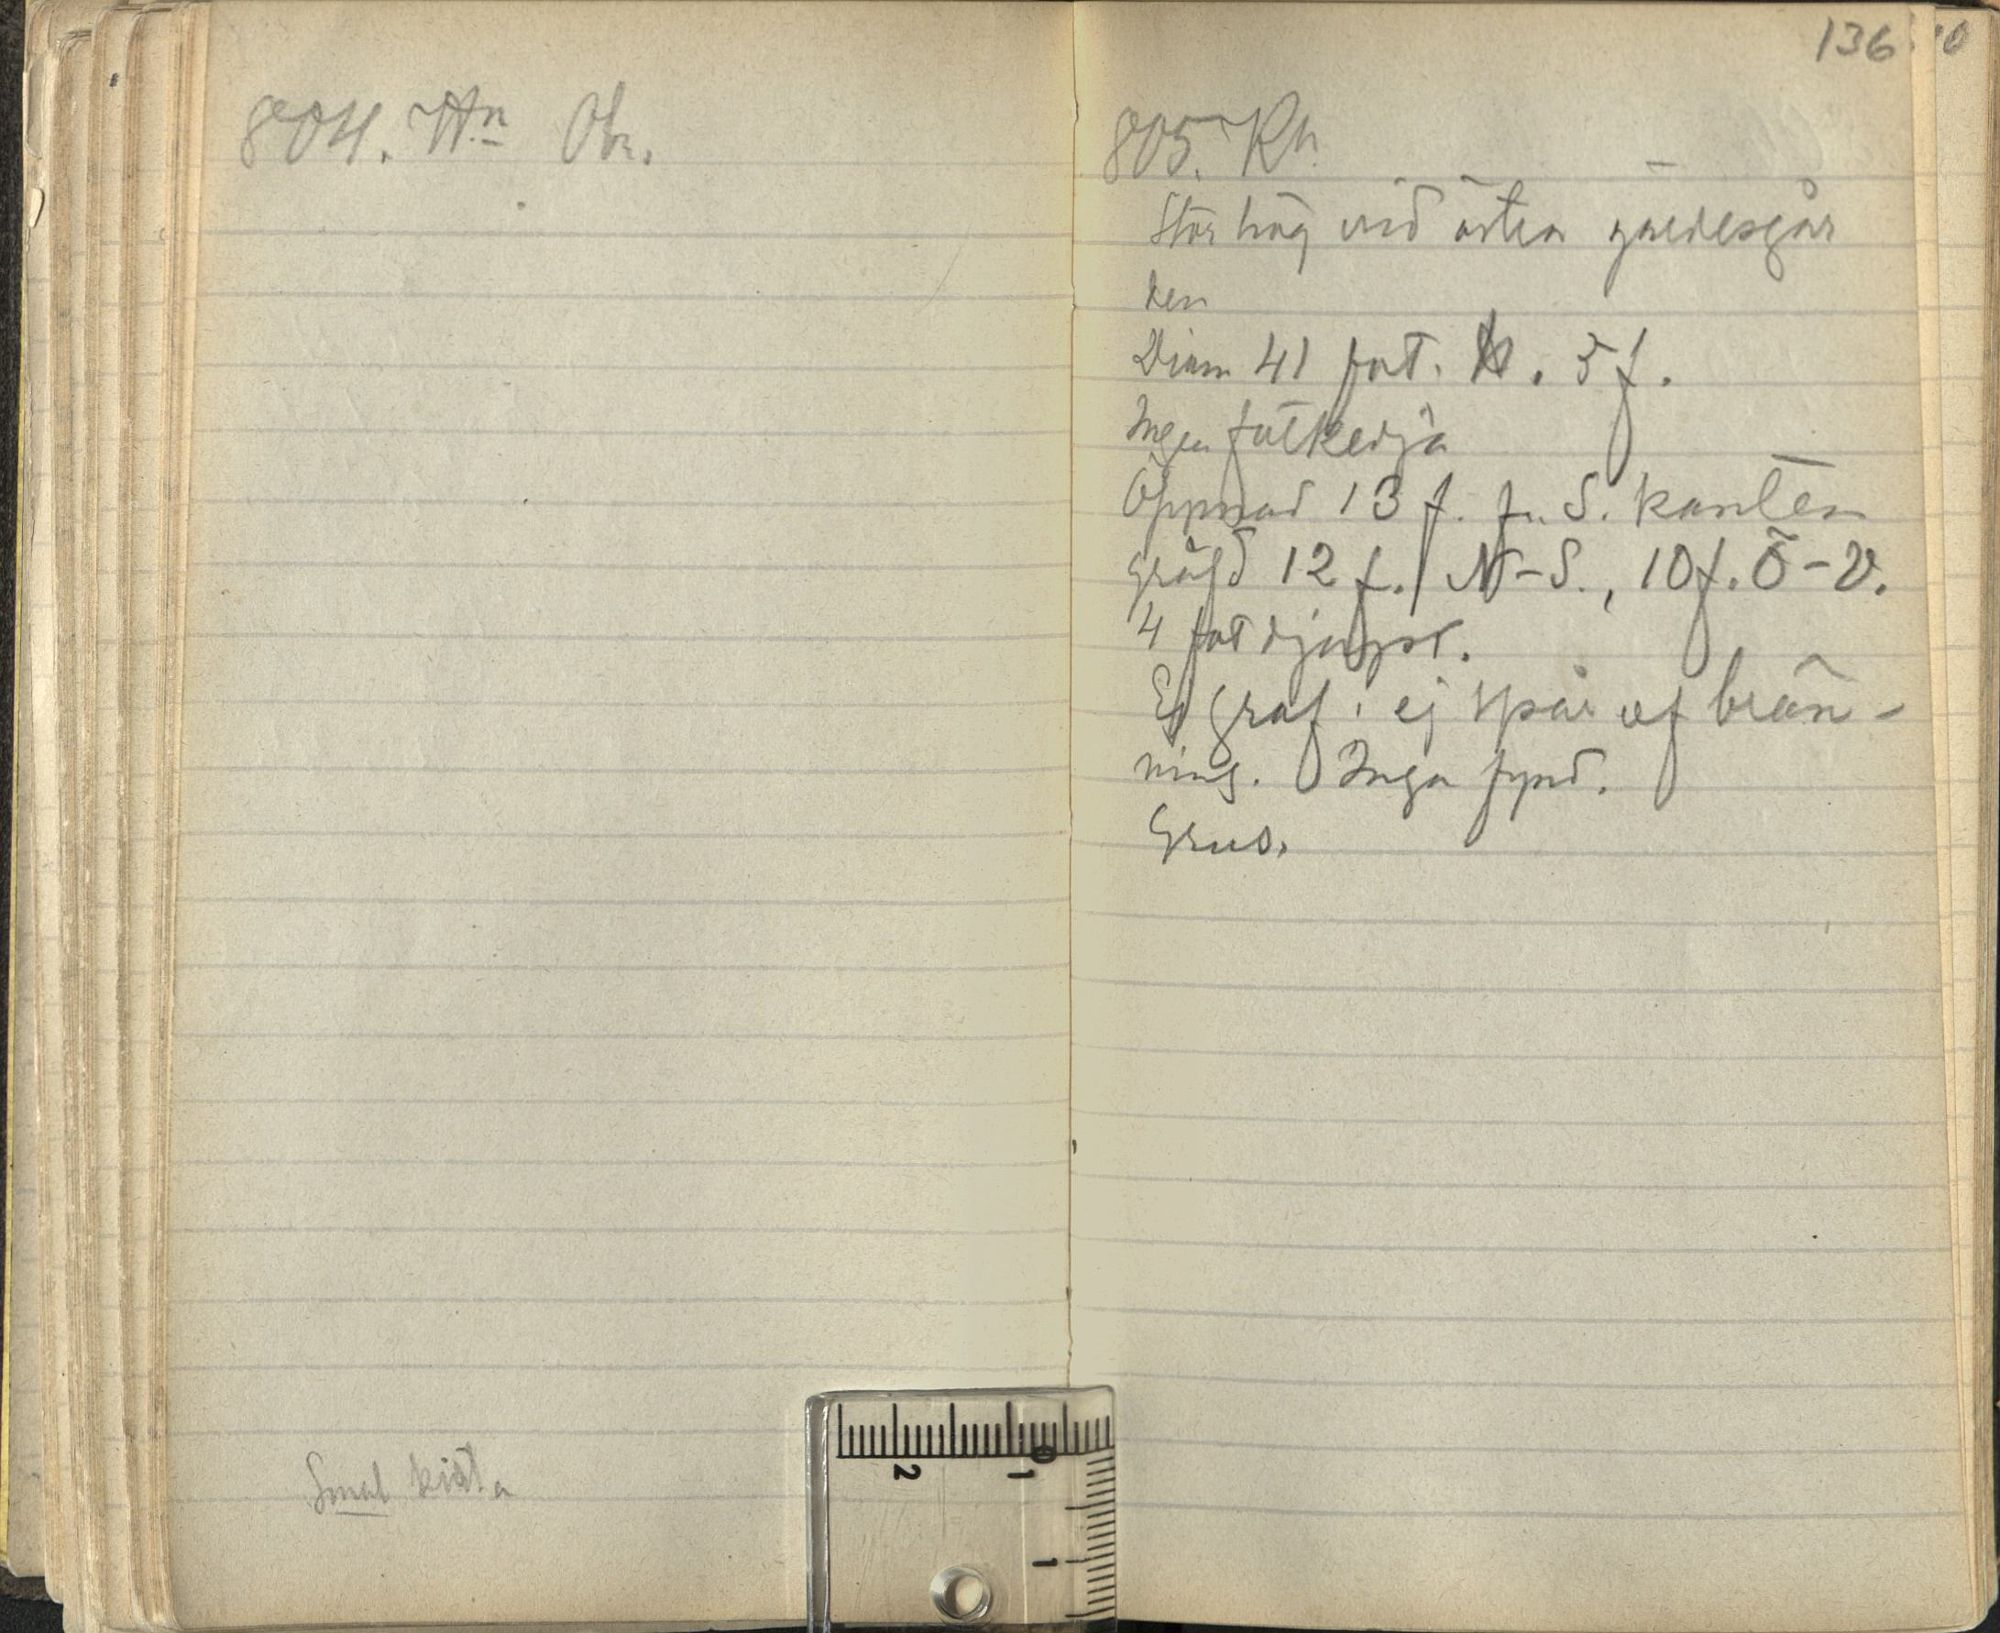 804. Hn Obr.
Smal kista
136
805. Rh.
Stor hög vid östra gärdesgår
den
Diam 41 fot. H. 5 f.
Ingen fotkedja
Öppnad 13 f. fr. S. kanten
gräfd 12 f. N-S., 10 f. Ö-V.
4 fot djupt.
Ej graf, ej spår af brän-
ning. Inga fynd.
Grus.
2 1 0
1